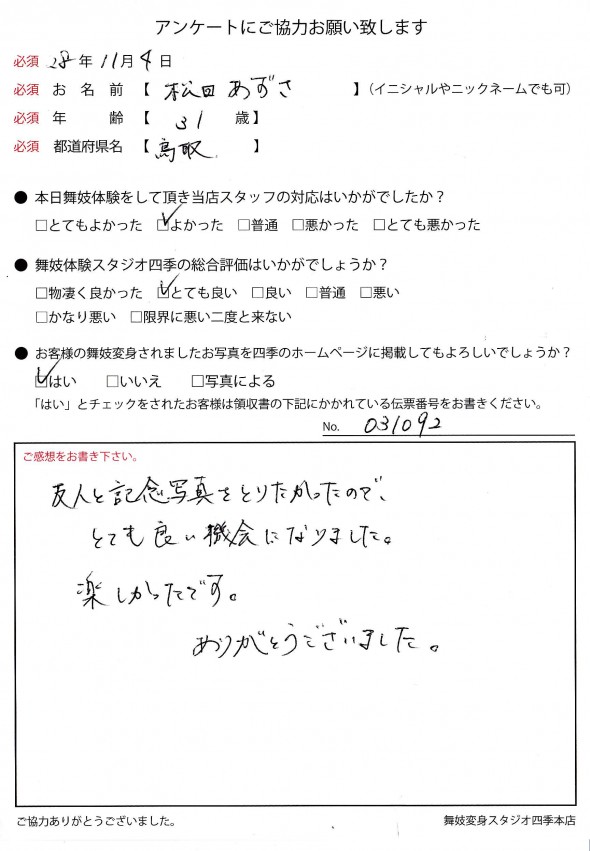 アンケートにご協力お願い致します
必須 28年11月4日
必須 お名前【 松田 あずさ 】(イニシャルやニックネームでも可)
必須 年齢【 31 歳】
必須 都道府県名【 鳥取 】
● 本日舞妓体験をして頂き当店スタッフの対応はいかがでしたか？
□とてもよかった ☑よかった □普通 □悪かった □とても悪かった
● 舞妓体験スタジオ四季の総合評価はいかがでしょうか？
□物凄く良かった ☑とても良い □良い □普通 □悪い
□かなり悪い □限界に悪い二度と来ない
● お客様の舞妓変身されましたお写真を四季のホームページに掲載してもよろしいでしょうか？
☑はい □いいえ □写真による
「はい」とチェックをされたお客様は領収書の下記にかかれている伝票番号をお書きください。
No. 031092
ご感想をお書き下さい。
友人と記念写真をとりたかったので、
とても良い機会になりました。
楽しかったです。
ありがとうございました。
ご協力ありがとうございました。
舞妓変身スタジオ四季本店